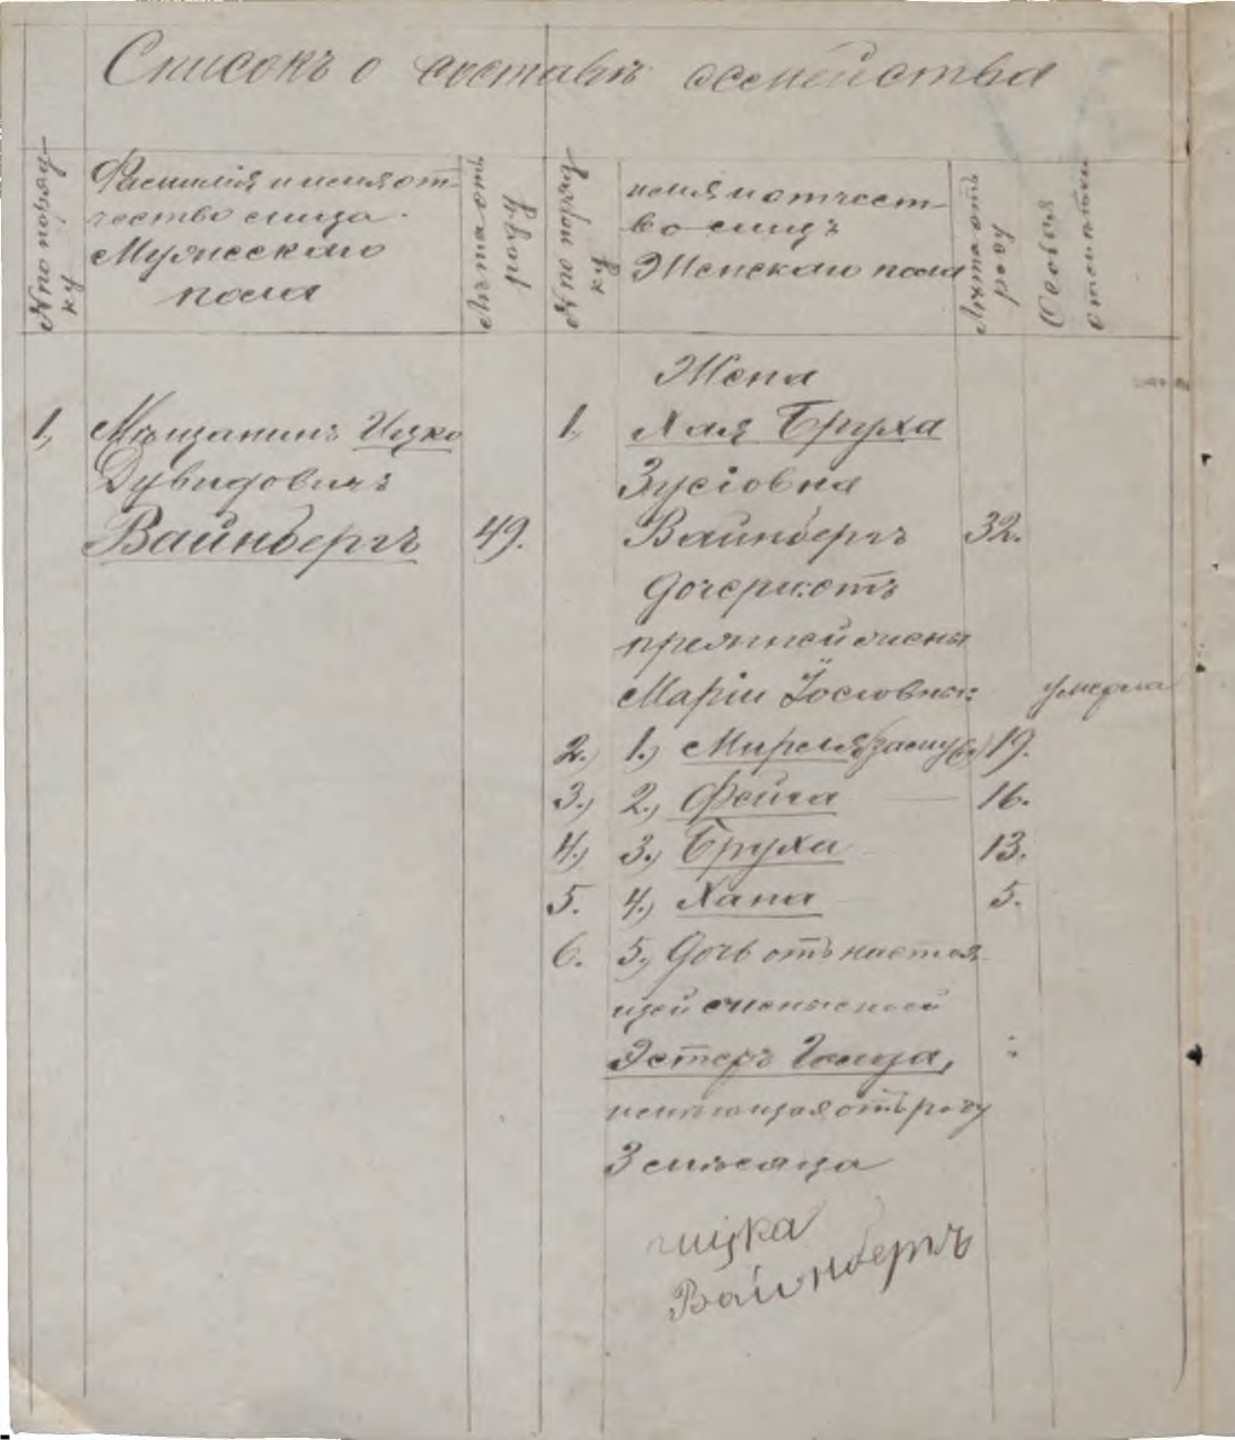 Списокъ о составѣ семейства
№ по поряд-
ку
Фамилія и имя от-
чество лица
Мужескаго
пола
Лѣта отъ
роду
№ по поряд
ку
имя и отчест-
во лицъ
Женскаго пола
Лѣта отъ
роду
Особыя
отмѣтки
Жена
1, Мѣщанинъ Ицко
Дувидовичъ
Вайнбергъ 49.
1, Хая Бруха
Зусіовна
Вайнбергъ 32.
Дочери: отъ
прежней жены
Маріи Іосіовны: умерла
2., 1.) Мирля (замуж) 19.
3., 2., Фейга — 16.
4., 3., Бруха 13.
5. 4., Хана 5.
6. 5., Дочь отъ настоя
щей жены
Эстеръ Голда,
имѣющая отъ роду
3 мѣсяца
Ицка
Вайнбергъ